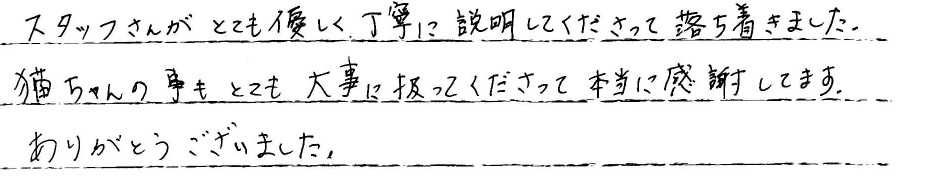 スタッフさんがとても優しく、丁寧に説明してくださって落ち着きました。
猫ちゃんの事もとても大事に扱ってくださって本当に感謝してます。
ありがとうございました。